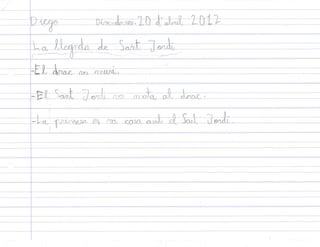 Diego Divendres 20 d'abril 2012
La llegenda de Sant Jordi
-El drac no mori.
-El Sant Jordi no mata al drac.
-La princesa es no casa amb el Sant Jordi.